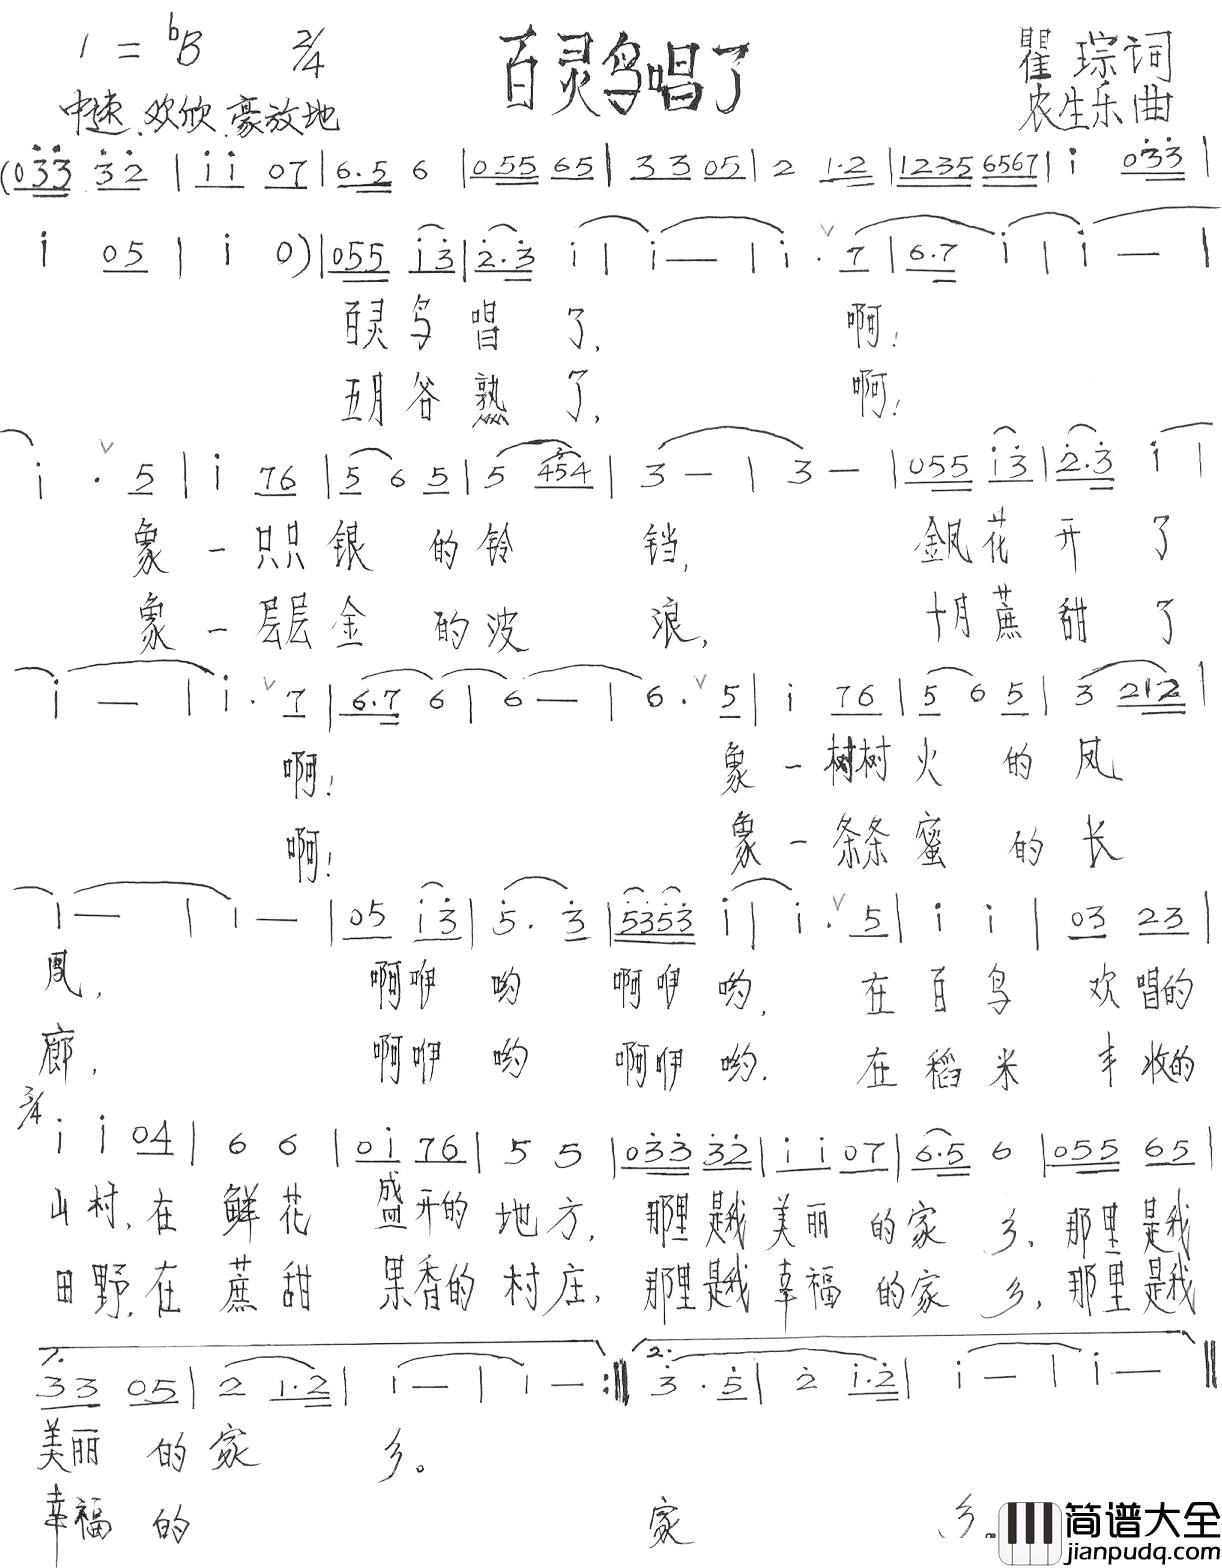 1=ᵇB 2/4 百灵鸟唱了 瞿琮词
中速、欢欣、豪放地 农生乐曲
(033 32 | ii 07 | 6.5 6 | 055 65 | 33 05 | 2 1.2 | 1235 6567 | i 033 |
i 05 | i 0) | 055 i3 | 2.3 i | i — | i. 7 | 6.7 i | i — |
百灵鸟唱了, 啊!
五月谷熟了, 啊!
i. 5 | i 76 | 5 6 5 | 5 454 | 3 — | 3 — | 055 i3 | 2.3 i |
象一只只银的铃铛, 金凤花开了
象一层层金的波浪, 十月蔗甜了
i — | i. 7 | 6.7 6 | 6 — | 6. 5 | i 76 | 5 6 5 | 3 212 |
啊! 象一树树火的凤
啊! 象一条条蜜的长
1 — | 1 — | 05 i3 | 5. 3 | 5353 i | i. 5 | i i | 03 23 |
凰, 啊咿哟啊咿哟, 在百鸟欢唱的
廊, 啊咿哟啊咿哟. 在稻米丰收的
3/4
i i 04 | 6 6 | 0i 76 | 5 5 | 033 32 | ii 07 | 6.5 6 | 055 65 |
山村,在鲜花盛开的地方, 那里是我美丽的家乡、那里是我
田野,在蔗甜果香的村庄, 那里是我幸福的家乡,那里是我
1. 2.
33 05 | 2 1.2 | i — | i — :‖ 3. 5 | 2 i.2 | i — | i — ‖
美丽的家乡。
幸福的家乡。
简谱大全
jianpudq.com